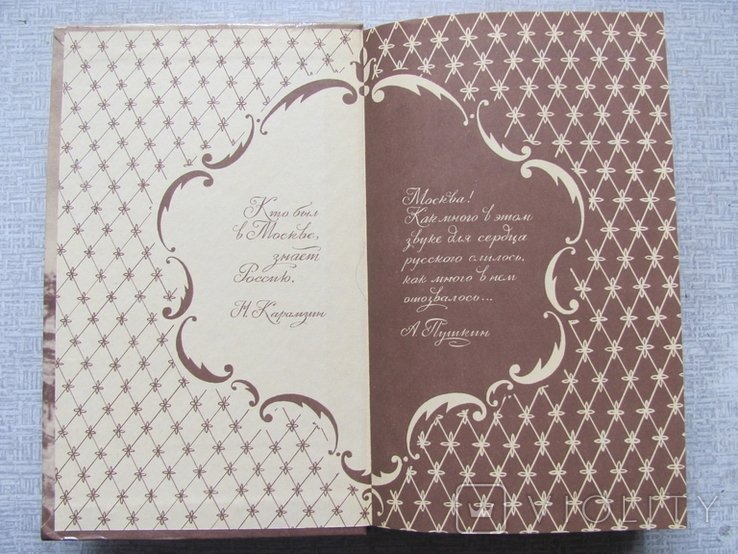 Кто был
в Москве,
знает
Россию.
Н. Карамзин
Москва!
Как много в этом
звуке для сердца
русского слилось,
как много в нем
отозвалось...
А. Пушкин
VIOLITY